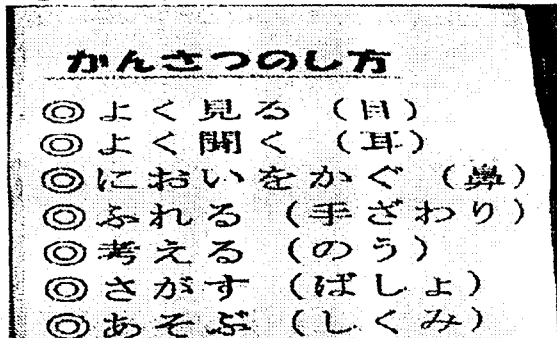 かんさつのし方
◎よく見る（目）
◎よく聞く（耳）
◎においをかぐ（鼻）
◎ふれる（手ざわり）
◎考える（のう）
◎さがす（ばしょ）
◎あそぶ（しくみ）